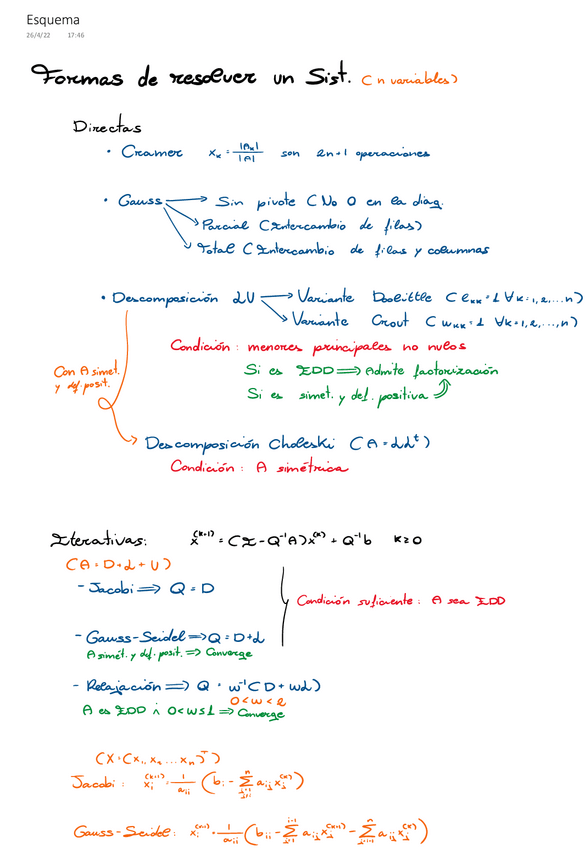 Esquema
26/4/22 17:46
Formas de resolver un Sist. (n variables)
Directas
• Cramer x_k = |A_k| / |A| son 2n+1 operaciones
• Gauss → Sin pivote (No 0 en la diag.
→ Parcial (Intercambio de filas)
→ Total (Intercambio de filas y columnas
• Descomposición LU → Variante Doolittle (l_kk = 1 ∀k=1,2,...,n)
→ Variante Crout (u_kk = 1 ∀k=1,2,...,n)
Condición: menores principales no nulos
Con A simet. y def. posit.
Si es EDD ⟹ Admite factorización
Si es simet. y def. positiva
Descomposición Choleski (A = LL^t)
Condición: A simétrica
Iterativas: x^(k+1) = (I - Q^-1 A)x^(k) + Q^-1 b k≥0
(A = D + L + U)
- Jacobi ⟹ Q = D
Condición suficiente: A sea EDD
- Gauss-Seidel ⟹ Q = D+L
A simét. y def. posit. ⟹ Converge
- Relajación ⟹ Q = w^-1 (D + wL)
0 < w < 2
A es EDD ∧ 0<w≤1 ⟹ Converge
(X = (x_1, x_2 ... x_n)^T)
Jacobi: x_i^(k+1) = 1/a_ii (b_i - ∑_{j=1, j≠i}^n a_ij x_j^(k))
Gauss-Seidel: x_i^(k+1) = 1/a_ii (b_ii - ∑_{j=1}^{i-1} a_ij x_j^(k+1) - ∑^n a_ij x_j^(k))